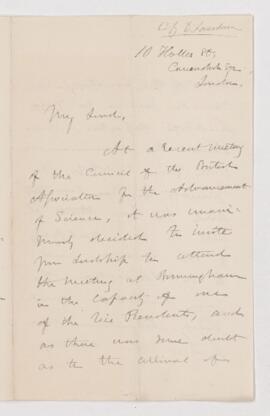 10 Holles St,
Cavendish Sqr
London,
My Lord,
At a recent meeting
of the Council of the British
Association for the Advancement
of Science, it was unani-
mously decided to invite
your Lordship to attend
the meeting at Birmingham
in the capacity of one
of the Vice Presidents, and
as there was some doubt
as to the arrival of